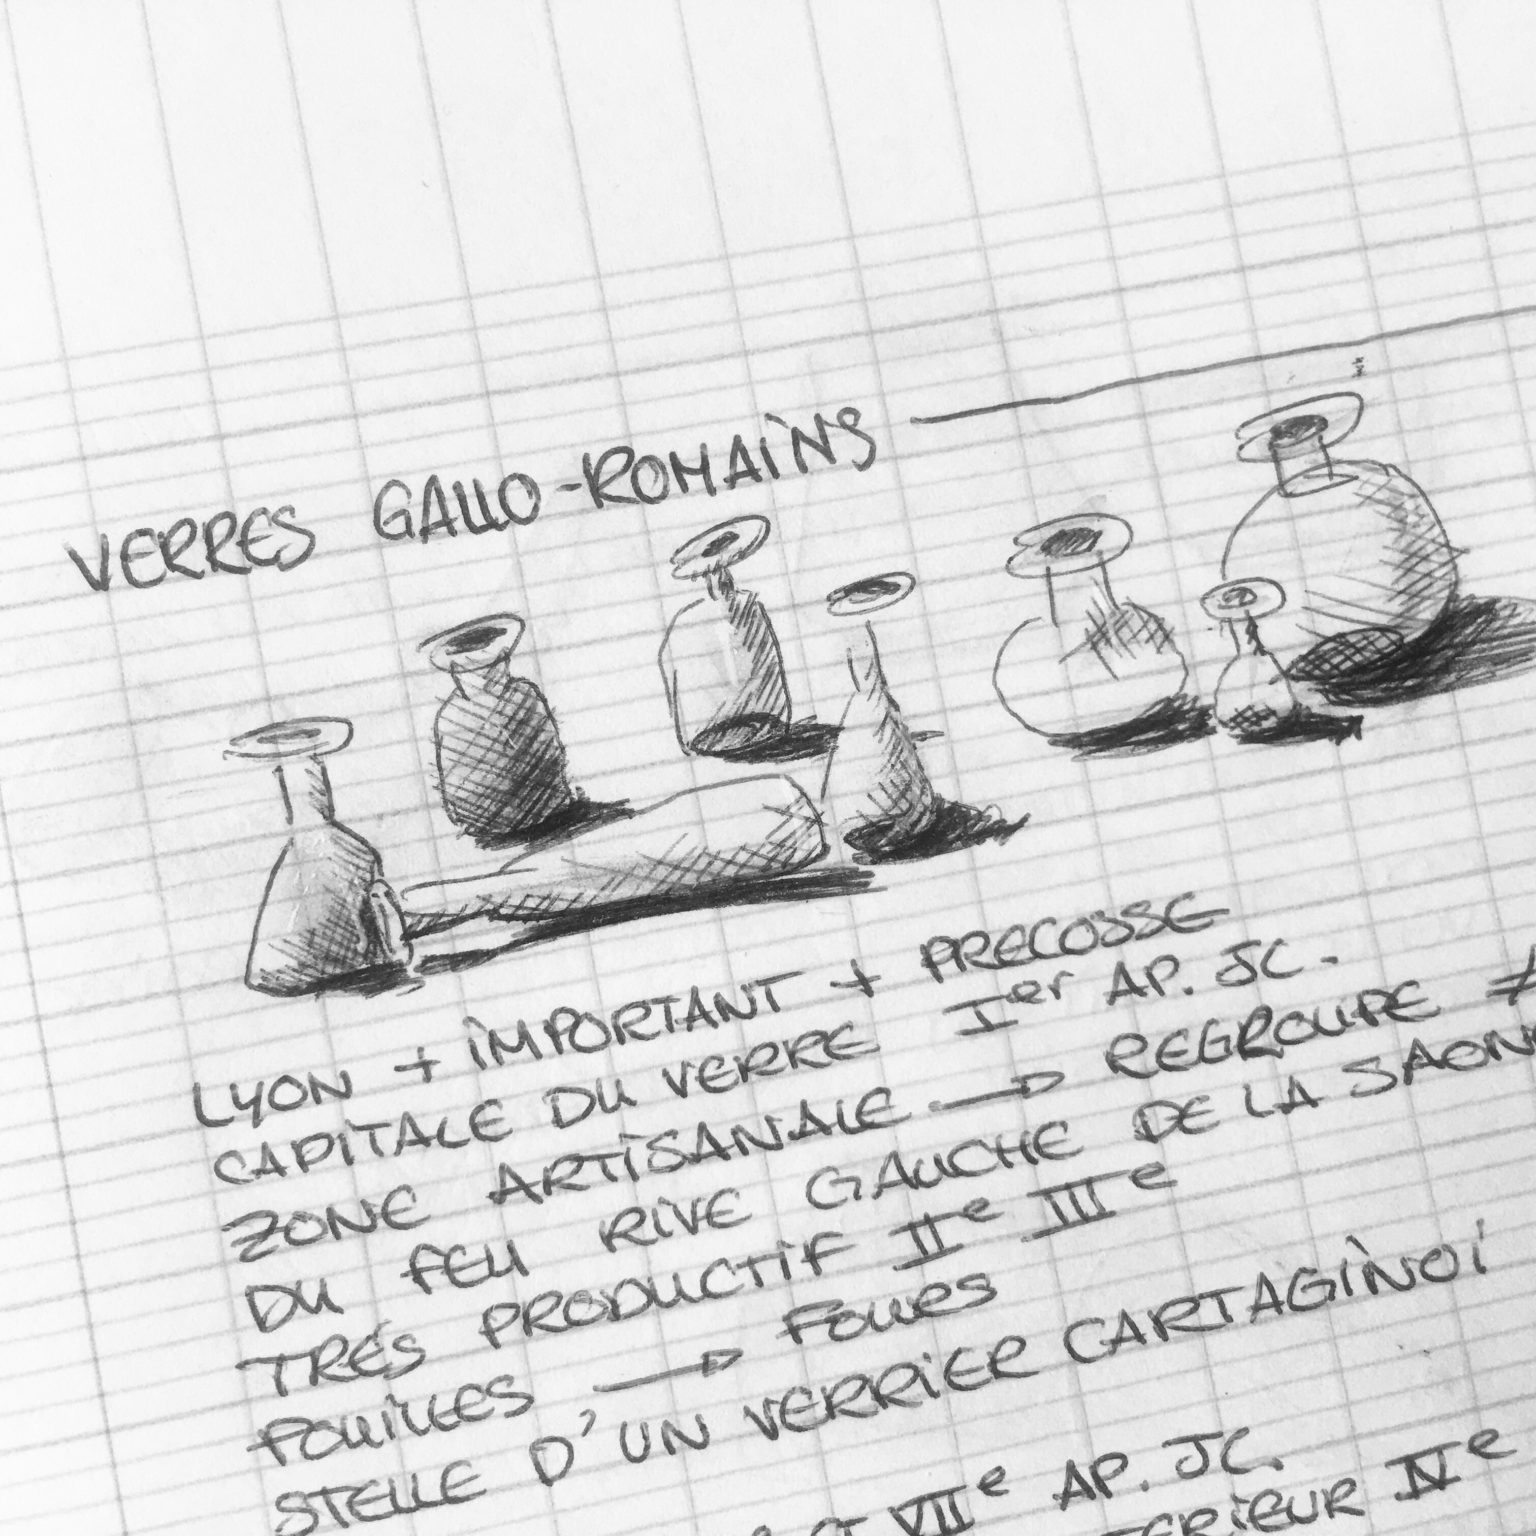 VERRES GALLO-ROMAINS
LYON + IMPORTANT + PRECOSSE
CAPITALE DU VERRE Ier AP. JC.
ZONE ARTISANALE → REGROUPE ≠
DU FEU RIVE GAUCHE DE LA SAON
TRÉS PRODUCTIF IIe IIIe
FOUILLES → FOURS
STELLE D'UN VERRIER CARTAGINOI
VIIe AP. JC.
TERIEUR IVe